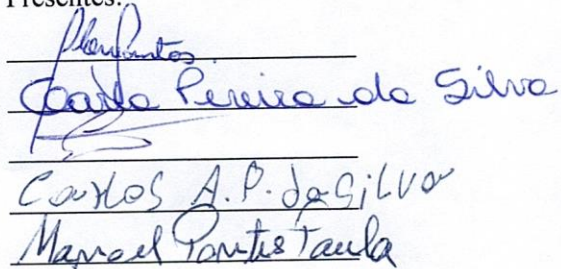 Presentes:
Pereira da Silva
Carlos A. P. da Silva
Manoel Pontes Paula